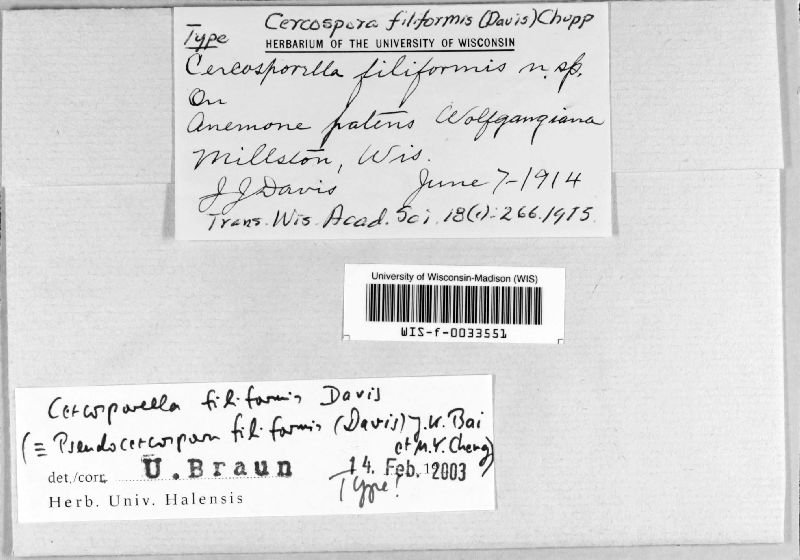 Cercospora filiformis (Davis) Chupp
Type
HERBARIUM OF THE UNIVERSITY OF WISCONSIN
Cercosporella filiformis n. sp.
On
Anemone patens Wolfgangiana
Millston, Wis.
J J Davis June 7-1914
Trans. Wis. Acad. Sci. 18(1):266.1915.
University of Wisconsin-Madison (WIS)
WIS-f-0033551
Cercosporella filiformis Davis
(≡ Pseudocercospora filiformis (Davis) J.K. Bai
et M.Y. Cheng)
det./corr. U. Braun 14. Feb. 2003
Type!
Herb. Univ. Halensis